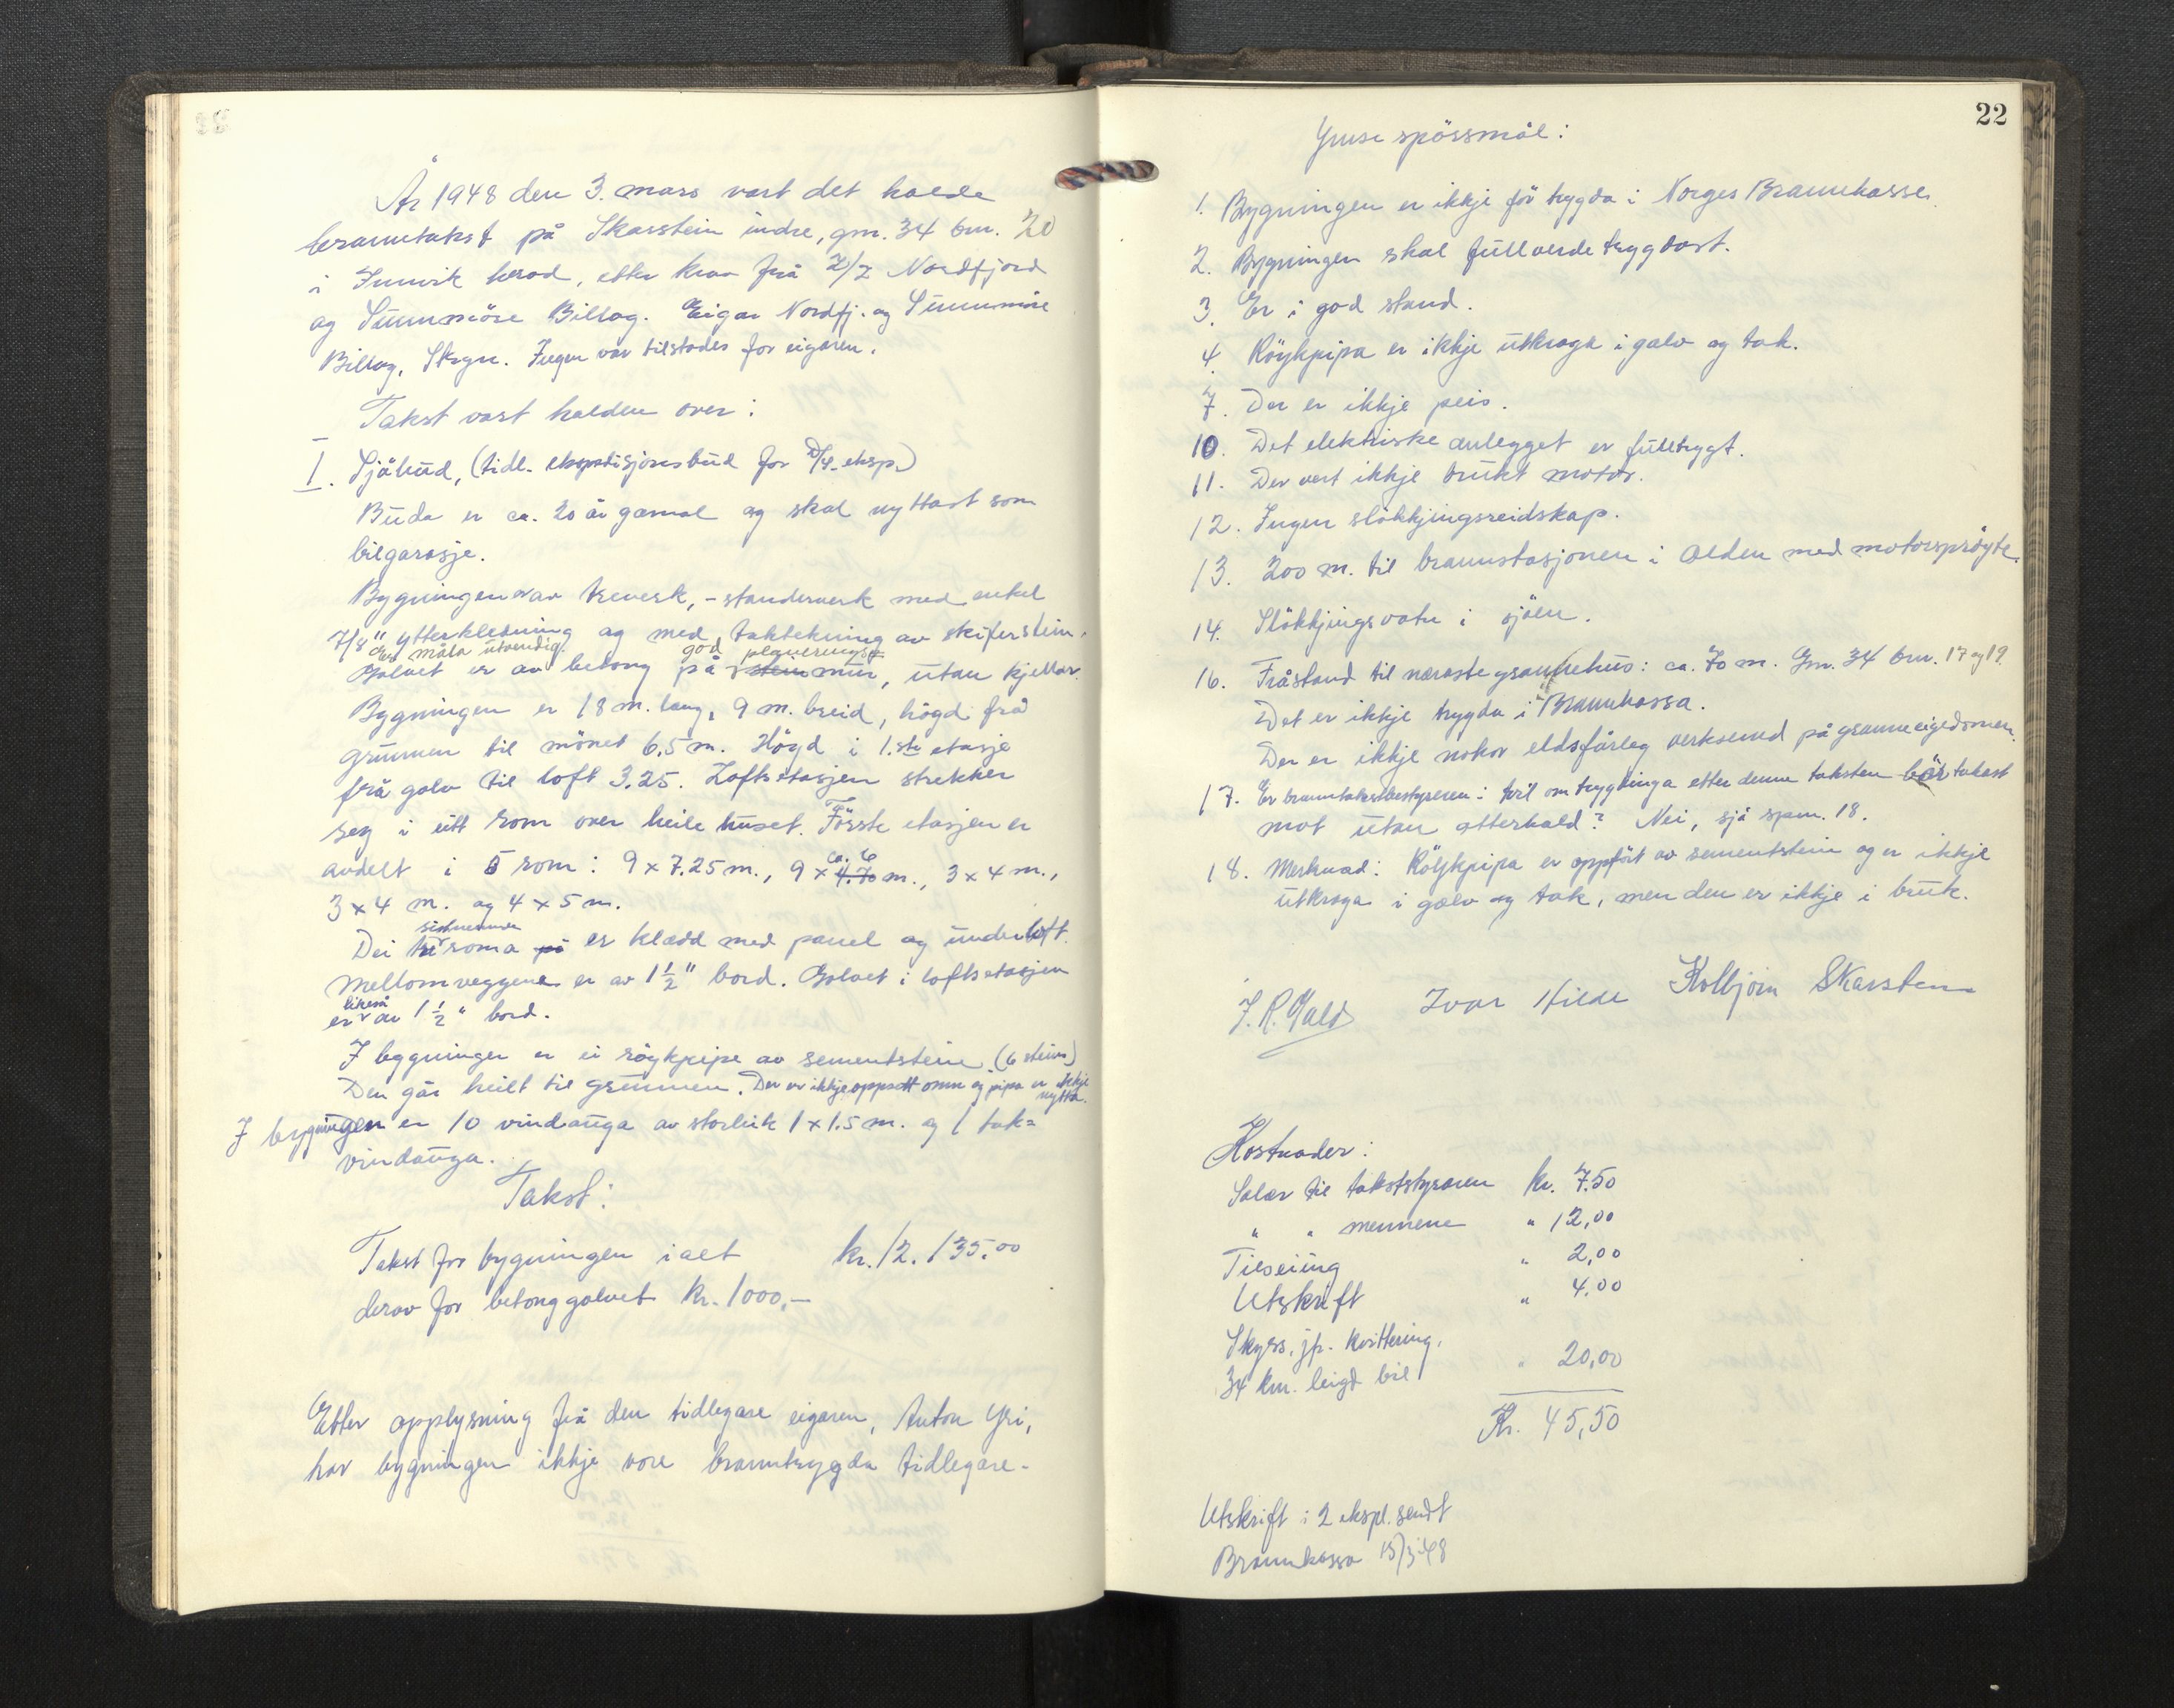 År 1948 den 3. mars vart det halde
branntakst på Skarstein indre, gnr. 34 bnr. 20
i Innvik herad, etter krav frå L/L Nordfjord
og Sunnmöre Billag. Eigar Nordfj. og Sunnmöre
Billag, Stryn. Ingen var tilstades for eigaren.
Takst vart halden over:
I. Sjöbud, (tidl. ekspedisjonsbud for D/S. eksp.)
Buda er ca. 20 år gamal og skal nyttast som
bilgarasje.
Bygningen er av treverk, - standerverk med enkel
7/8" ytterkledning og med taktekning av skiferstein.
Er måla utvendig. god pluverings=
Golvet er av betong på stein mur, utan kjellar.
Bygningen er 18 m. lang, 9 m. breid, högd frå
grunnen til mönet 6,5 m. Högd i 1.ste etasje
frå golv til loft 3.25. Loftsetasjen strekker
seg i eitt rom over heile huset. Förste etasjen er
avdelt i 5 rom: 9 x 7.25 m., 9 x 4.70 ca. 6 m., 3 x 4 m.,
3 x 4 m. og 4 x 5 m.
sistnemnde
Dei tri roma på er klædd med panel og underloft.
Mellomveggene er av 1 1/2" bord. Golvet i loftsetasjen
likeså
er av 1 1/2" bord.
I bygningen er ei röykpipe av sementstein (6 steins)
Den går heilt til grunnen. Der er ikkje oppsatt omn og pipa er ikkje
nytta.
I bygningen er 10 vindauga av storleik 1 x 1.5 m. og 1 tak=
vindauga.
Takst:
Takst for bygningen ialt kr. 12.135.00
derav for betonggolvet kr. 1000,-
Etter opplysning frå den tidlegare eigaren, Anton Yri,
har bygningen ikkje vore branntrygda tidlegare.
22
Ymse spörsmål:
1. Bygningen er ikkje för trygda i Norges Brannkasse.
2. Bygningen skal fullverdetrygdast.
3. Er i god stand.
4. Röykpipa er ikkje utkraga i golv og tak.
7. Der er ikkje peis.
10. Det elektriske anlegget er fulltrygt.
11. Der vert ikkje brukt motor.
12. Ingen slökkjingsreidskap.
13. 200 m. til brannstasjonen i Olden med motorspröyte.
14. Slökkjingsvatn i sjöen.
16. Fråstand til næraste grannehus: ca. 70 m. Gnr. 34 bnr. 17 og 19.
Det er ikkje trygda i Brannkassa.
Der er ikkje nokor eldsfårleg verksemd på granneeigedomen.
17. Er branntakstbestyraren i tvil om trygdinga etter denne taksten bör takast
mot utan atterhald? Nei, sjå spm. 18.
18. Merknad: Röykpipa er oppfört av sementstein og er ikkje
utkraga i golv og tak, men den er ikkje i bruk.
J. R. Gald Ivar Hilde Kolbjörn Skarsten
Kostnader:
Salær til takststyraren kr. 7.50
" " mennene " 12,00
Tilseiing " 2,00
Utskrift " 4.00
Skyss, jfr. kvittering,
34 km. leigd bil " 20,00
Kr. 45,50
Utskrift i 2 ekspl. sendt
Brannkassa 15/3-48